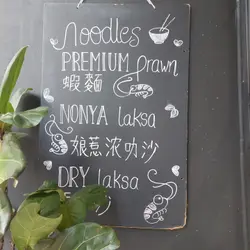 noodles
PREMIUM prawn
蝦麵
NONYA laksa
娘惹浓叻沙
DRY laksa